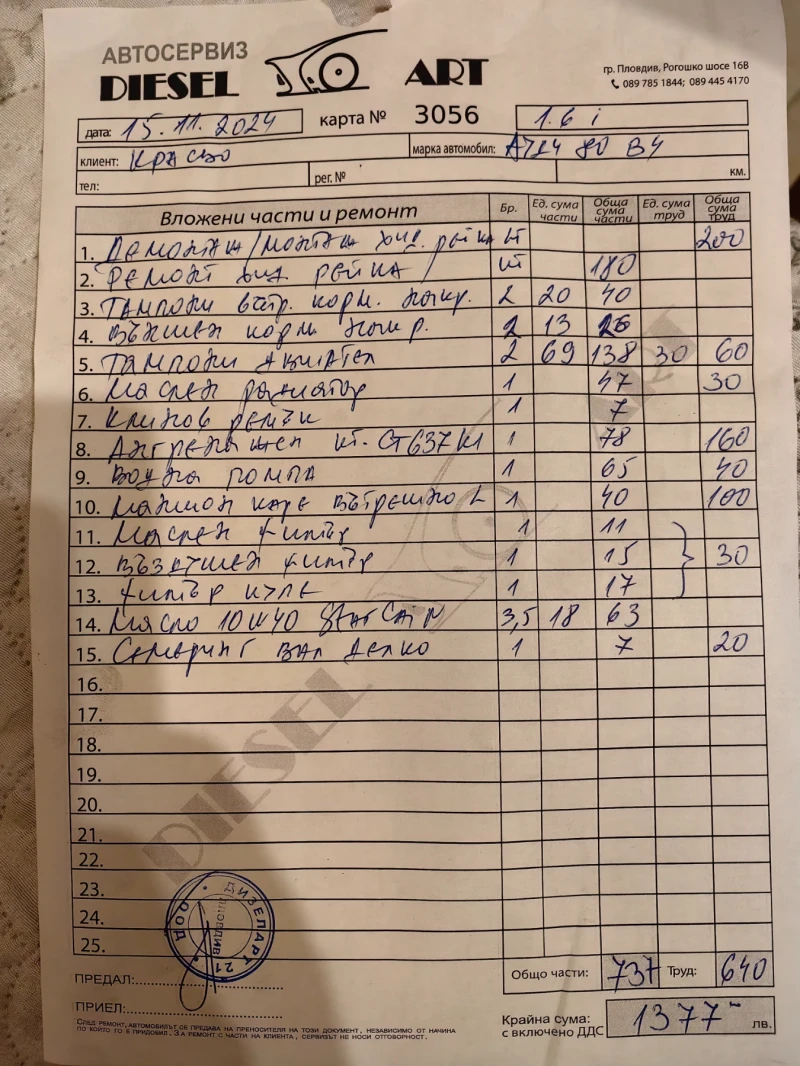 АВТОСЕРВИЗ
DIESEL ART
гр. Пловдив, Рогошко шосе 16В
089 785 1844; 089 445 4170
дата: 15.11.2024 карта № 3056 1.6 i
клиент: Красьо марка автомобил: Ауди 80 B4
тел: рег. № км.
Вложени части и ремонт Бр. Ед. сума части Обща сума части Ед. сума труд Обща сума труд
1. Демонтаж/монтаж хид. рейка кт 200
2. Ремонт хид. рейка кт 180
3. Тампони вътр. корм. накр. 2 20 40
4. Външен корм. накр. 2 13 26
5. Тампони двигател 2 69 138 30 60
6. Маслен радиатор 1 47 30
7. Клинов ремък 1 7
8. Ангренажен кт. CT637K1 1 78 160
9. Водна помпа 1 65 40
10. Маншон каре вътрешно L 1 40 100
11. Маслен филтър 1 11
12. Въздушен филтър 1 15 30
13. Филтър купе 1 17
14. Масло 10W40 3,5 18 63
15. Семеринг вал делко 1 7 20
16.
17.
18.
19.
20.
21.
22.
23.
24.
25.
DIESEL ART
ДИЗЕЛАРТ 21 ООД
ПЛОВДИВ
Общо части: 737 Труд: 640
ПРЕДАЛ:
ПРИЕЛ:
Крайна сума: с включено ДДС 1377 лв.
СЛЕД РЕМОНТ, АВТОМОБИЛЪТ СЕ ПРЕДАВА НА ПРЕНОСИТЕЛЯ НА ТОЗИ ДОКУМЕНТ, НЕЗАВИСИМО ОТ НАЧИНА
ПО КОЙТО ГО Е ПРИДОБИЛ. ЗА РЕМОНТ С ЧАСТИ НА КЛИЕНТА, СЕРВИЗЪТ НЕ НОСИ ОТГОВОРНОСТ.